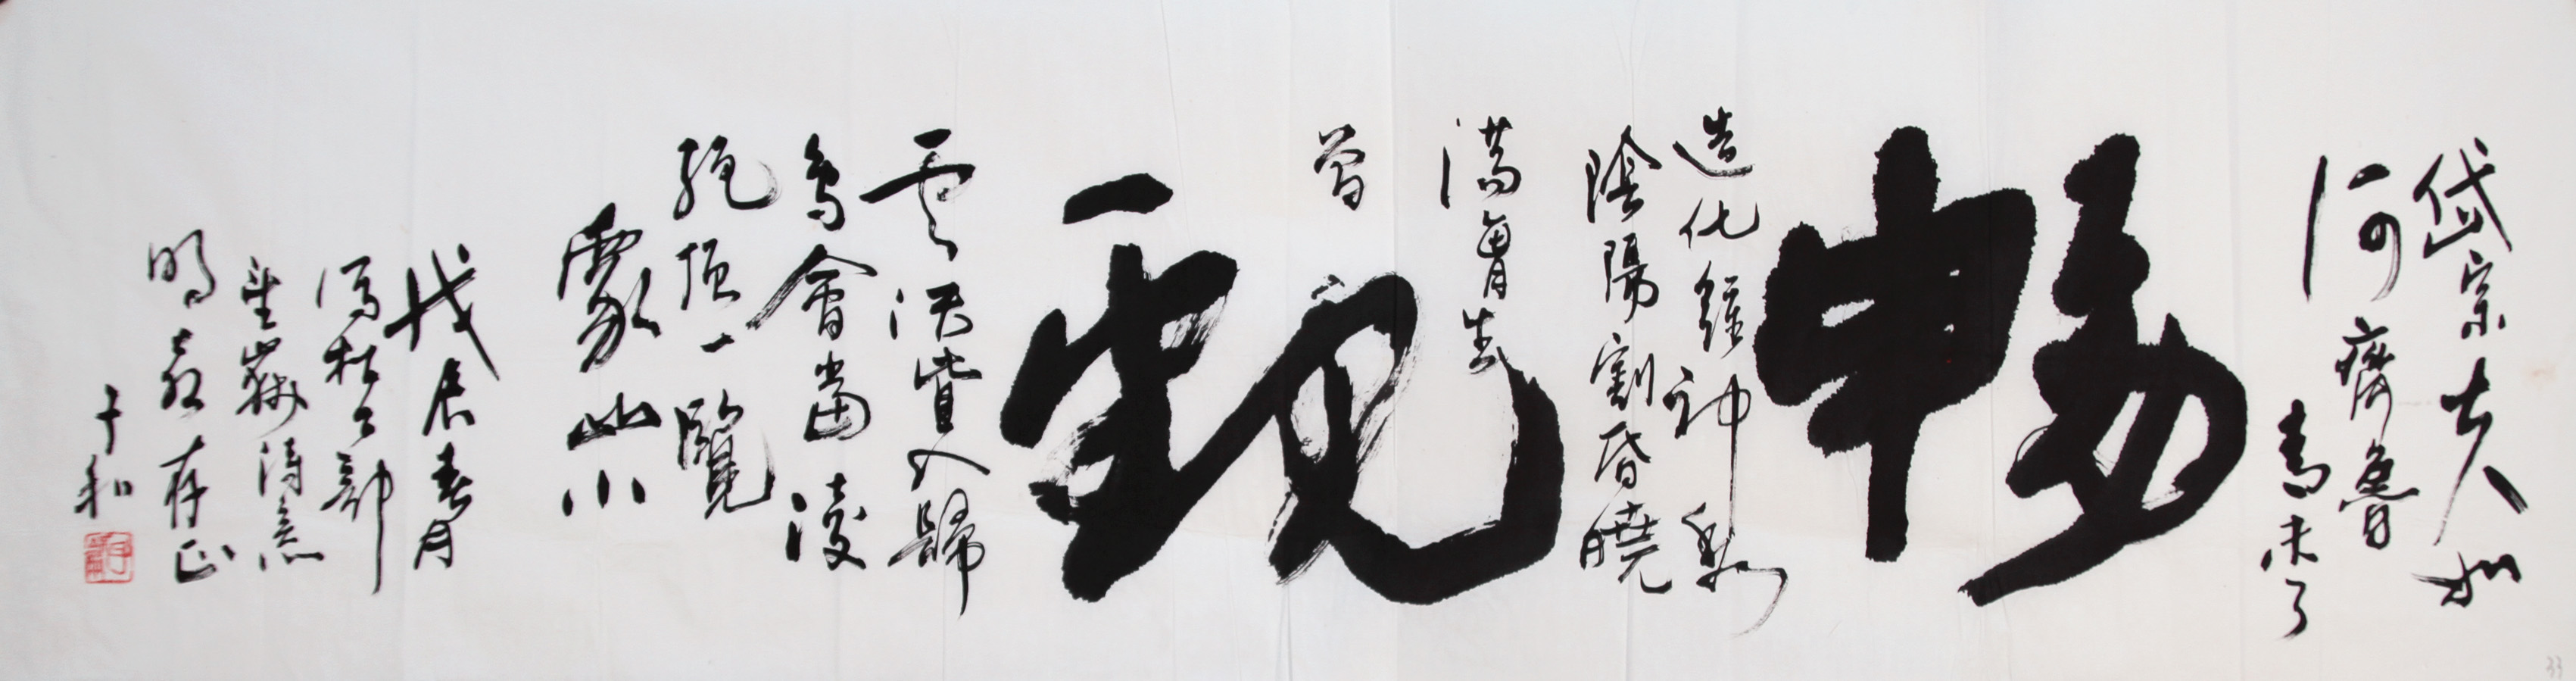 岱宗夫如
何齊魯
青未了
暢
造化鍾神秀
陰陽割昏曉
蕩胸生
曾
觀
雲決眥入歸
鳥會當凌
絕頂一覽
眾山小
戊辰春月
寫杜工部
望嶽詩意
明 存正
于和
33